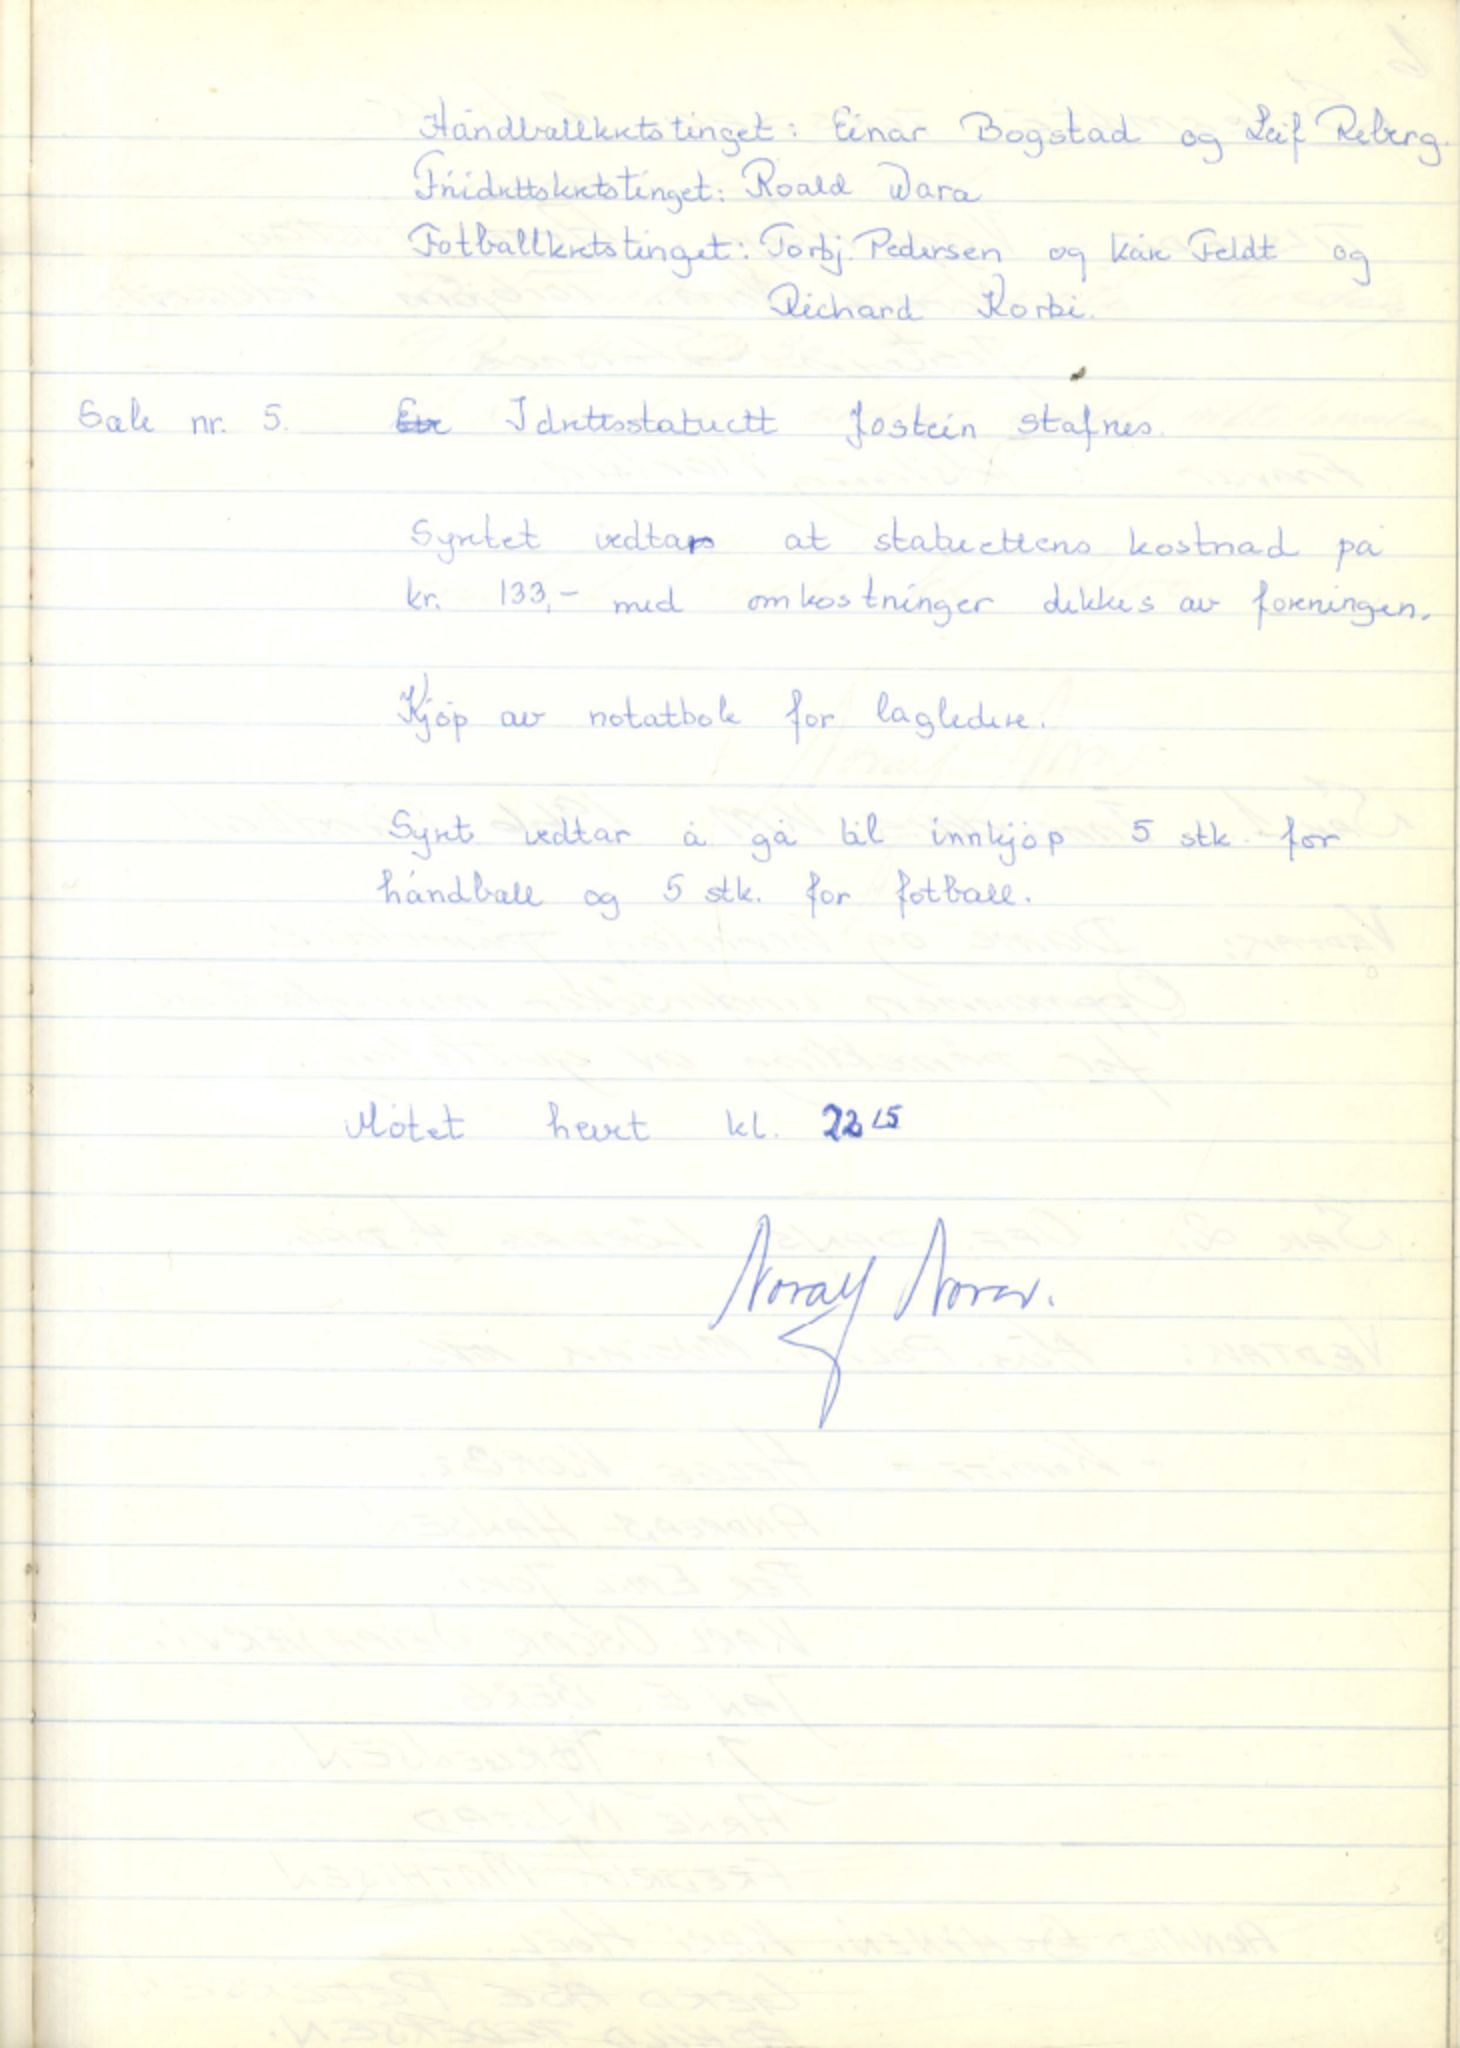 Håndballkretstinget: Einar Bogstad og Leif Reberg.
Friidrettskretstinget: Roald Wara
Fotballkretstinget: Torbj. Pedersen og Kåre Feldt og
Richard Korbi.
Sak nr. 5. Idrettsstatuett Jostein Stafnes.
Syret vedtar at statuettens kostnad på
kr. 133,- med omkostninger dekkes av foreningen.
Kjøp av notatbok for lagledere.
Styret vedtar å gå til innkjøp 5 stk. for
håndball og 5 stk. for fotball.
Møtet hevet kl. 22 15
Noralf